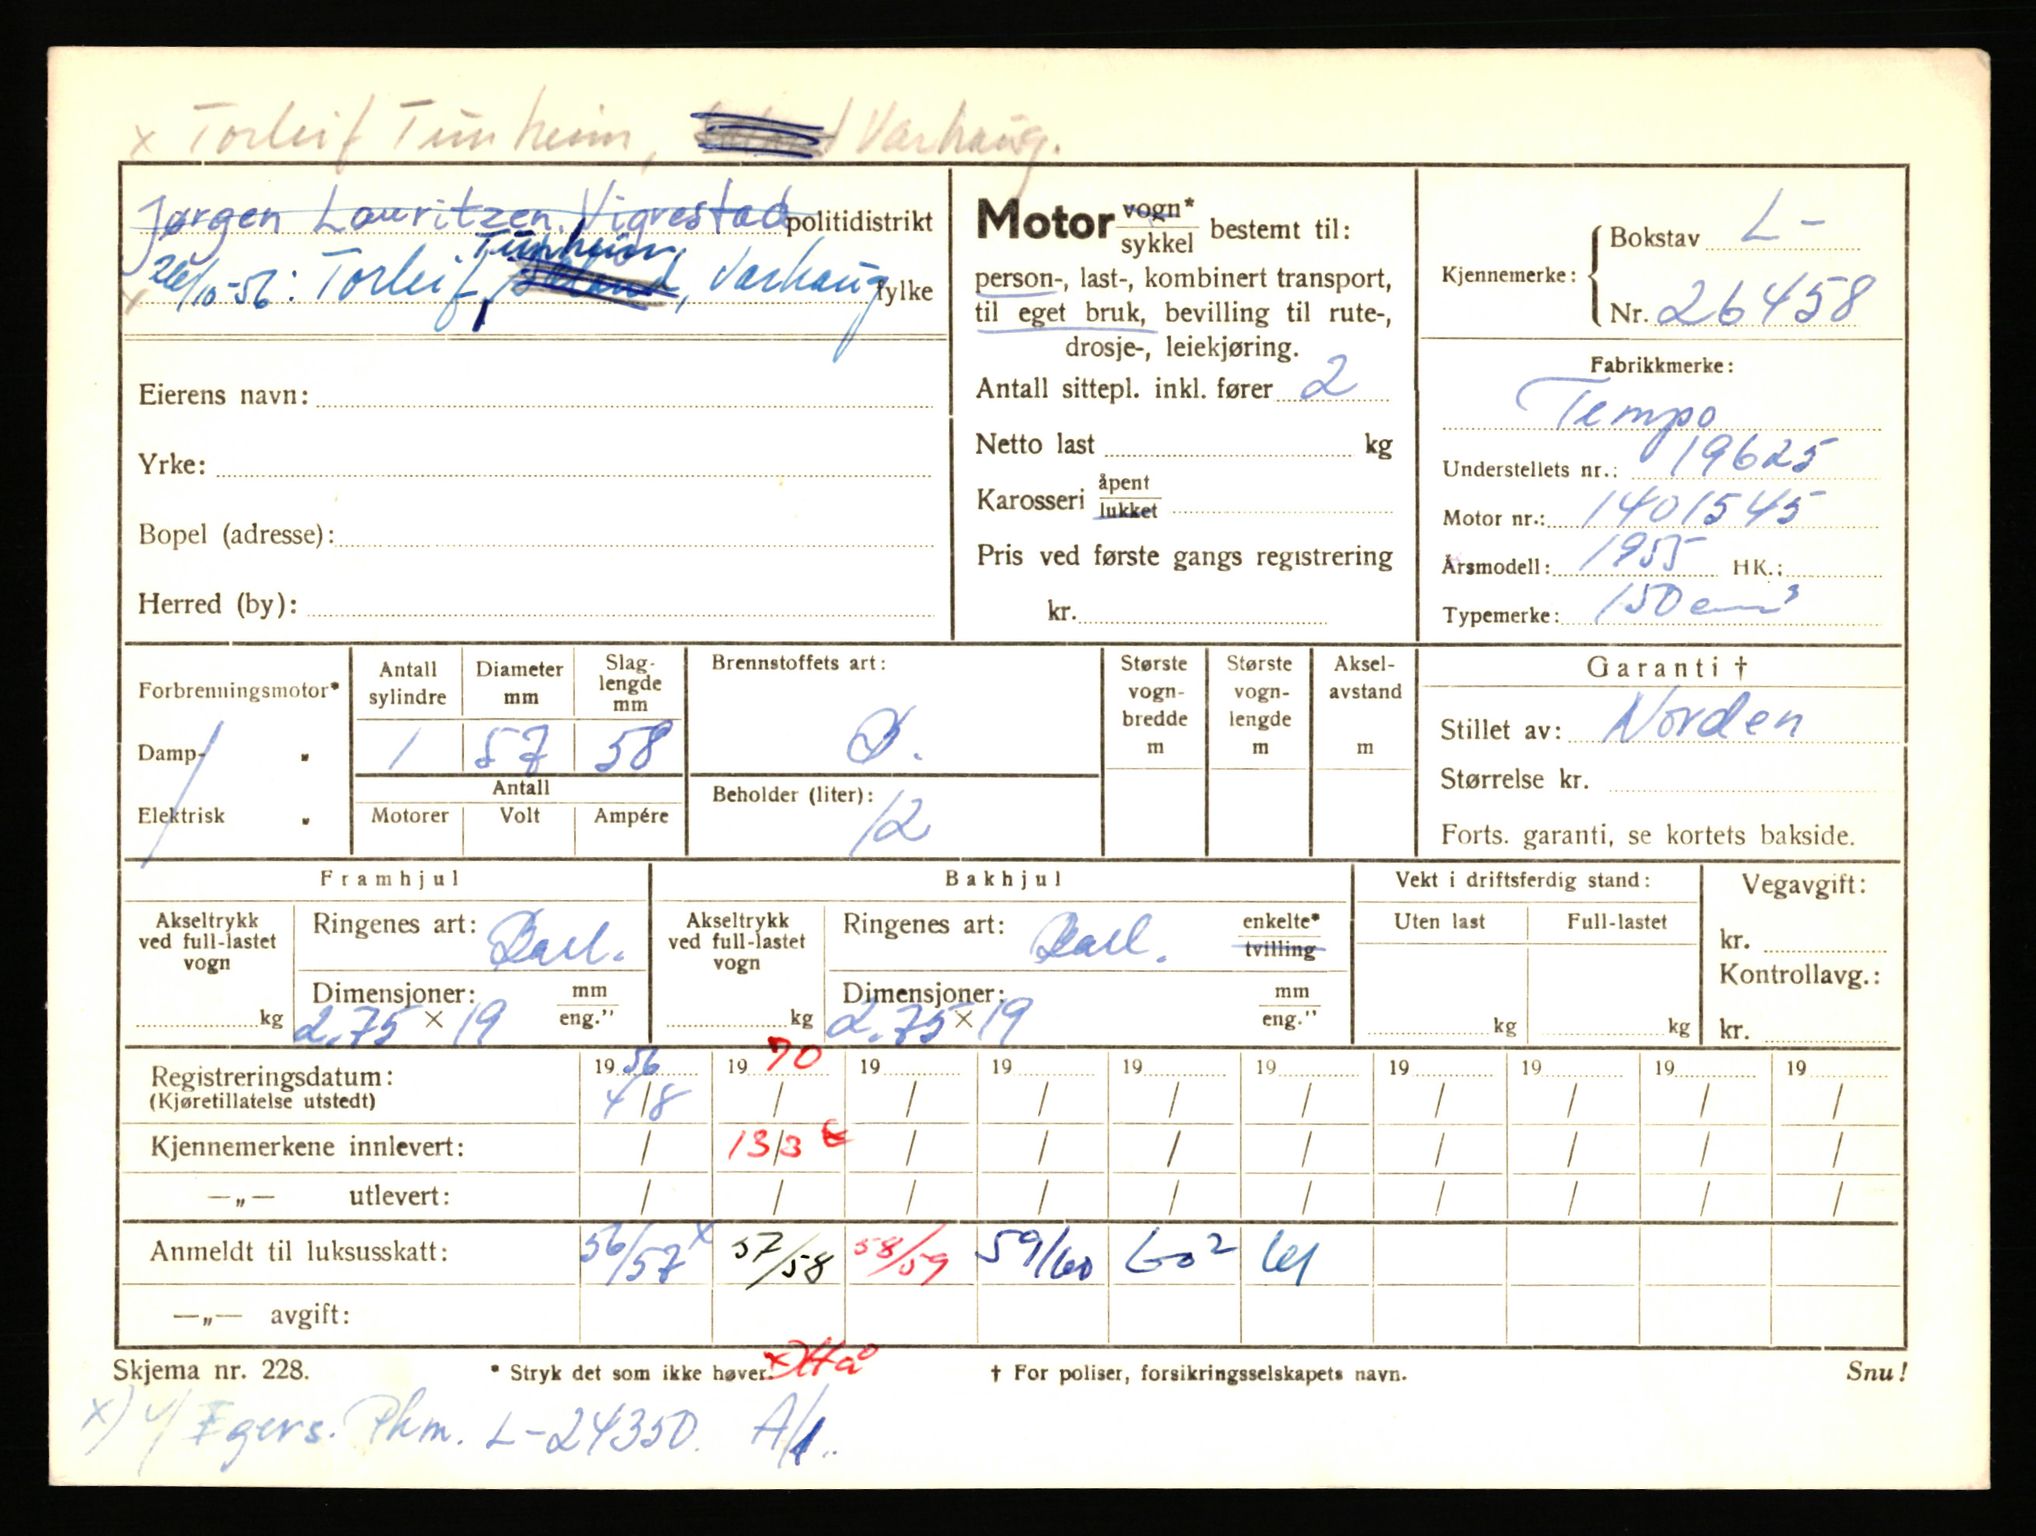 x Torleif Tunheim, Varhaug.
Jørgen Lauritzen, Vigrestad politidistrikt
Tunheim
26/10-56: Torleif, Varhaug fylke
Eierens navn:
Yrke:
Bopel (adresse):
Herred (by):
Motor vogn* / sykkel bestemt til:
person-, last-, kombinert transport,
til eget bruk, bevilling til rute-,
drosje-, leiekjøring.
Antall sittepl. inkl. fører 2
Netto last kg
Karosseri åpent / lukket
Pris ved første gangs registrering
kr.
Kjennemerke: Bokstav L-
Nr. 26458
Fabrikkmerke:
Tempo
Understellets nr.: 19625
Motor nr.: 1401545
Årsmodell: 1955 HK.:
Typemerke: 150 cm³
Forbrenningsmotor*
Damp- "
Elektrisk "
Antall sylindre
1
Diameter mm
57
Slag-lengde mm
58
Antall
Motorer Volt Ampére
Brennstoffets art:
B.
Beholder (liter):
12
Største vogn-bredde m
Største vogn-lengde m
Aksel-avstand m
Garanti †
Stillet av: Norden
Størrelse kr.
Forts. garanti, se kortets bakside.
Framhjul
Akseltrykk ved full-lastet vogn
kg
Ringenes art: Ball.
Dimensjoner: mm / eng."
2.75 x 19
Bakhjul
Akseltrykk ved full-lastet vogn
kg
Ringenes art: Ball. enkelte* / tvilling
Dimensjoner: mm / eng."
2.75 x 19
Vekt i driftsferdig stand:
Uten last Full-lastet
kg kg
Vegavgift:
kr.
Kontrollavg.:
kr.
Registreringsdatum: 19 56 19 70 19 19 19 19 19 19 19 19
(Kjøretillatelse utstedt) 4/8 / / / / / / / / /
Kjennemerkene innlevert: / 13/3 / / / / / / / /
—„— utlevert: / / / / / / / / / /
Anmeldt til luksusskatt: 56/57 x 57/58 58/59 59/60 60² 61
—„— avgift:
Skjema nr. 228. * Stryk det som ikke høver. x) Hå † For poliser, forsikringsselskapets navn. Snu!
x) Egers. Pkm. L-24350.